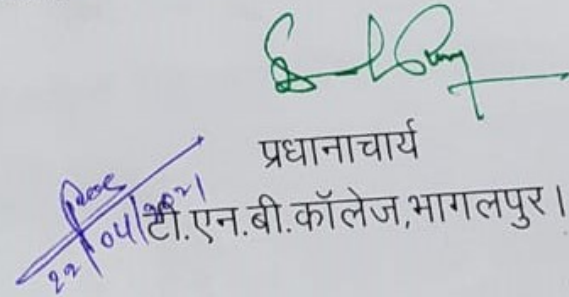 प्रधानाचार्य
टी.एन.बी.कॉलेज,भागलपुर।
22/04/2021